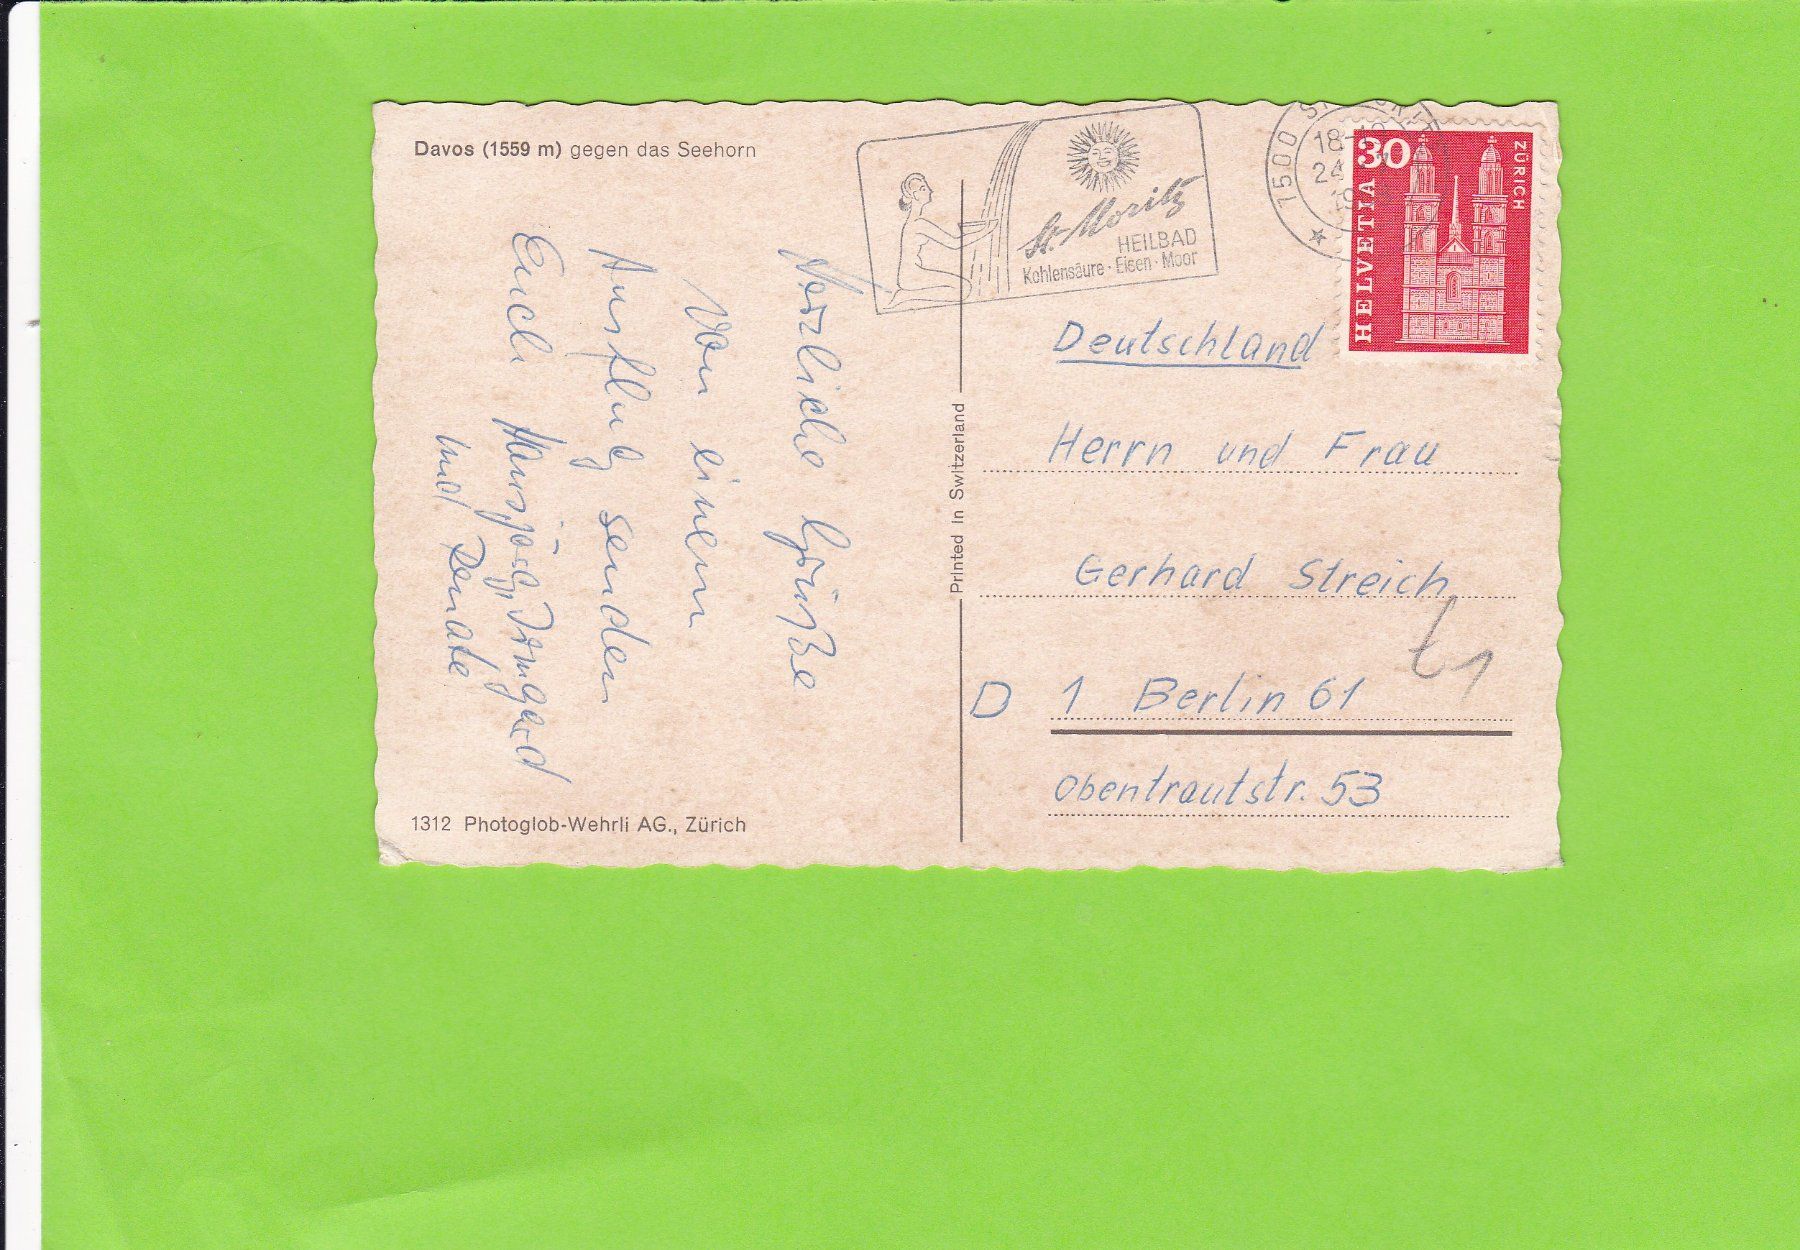 Davos (1559 m) gegen das Seehorn
Herzliche Grüße
von einem
Ausflug senden
Euch Hansjörg, Irmgard
und Renate
1312 Photoglob-Wehrli AG., Zürich
Printed in Switzerland
St. Moritz
HEILBAD
Kohlensäure · Eisen · Moor
7500
18-
24
19
30
HELVETIA
ZÜRICH
Deutschland
Herrn und Frau
Gerhard Streich
D 1 Berlin 61
Obentrautstr. 53